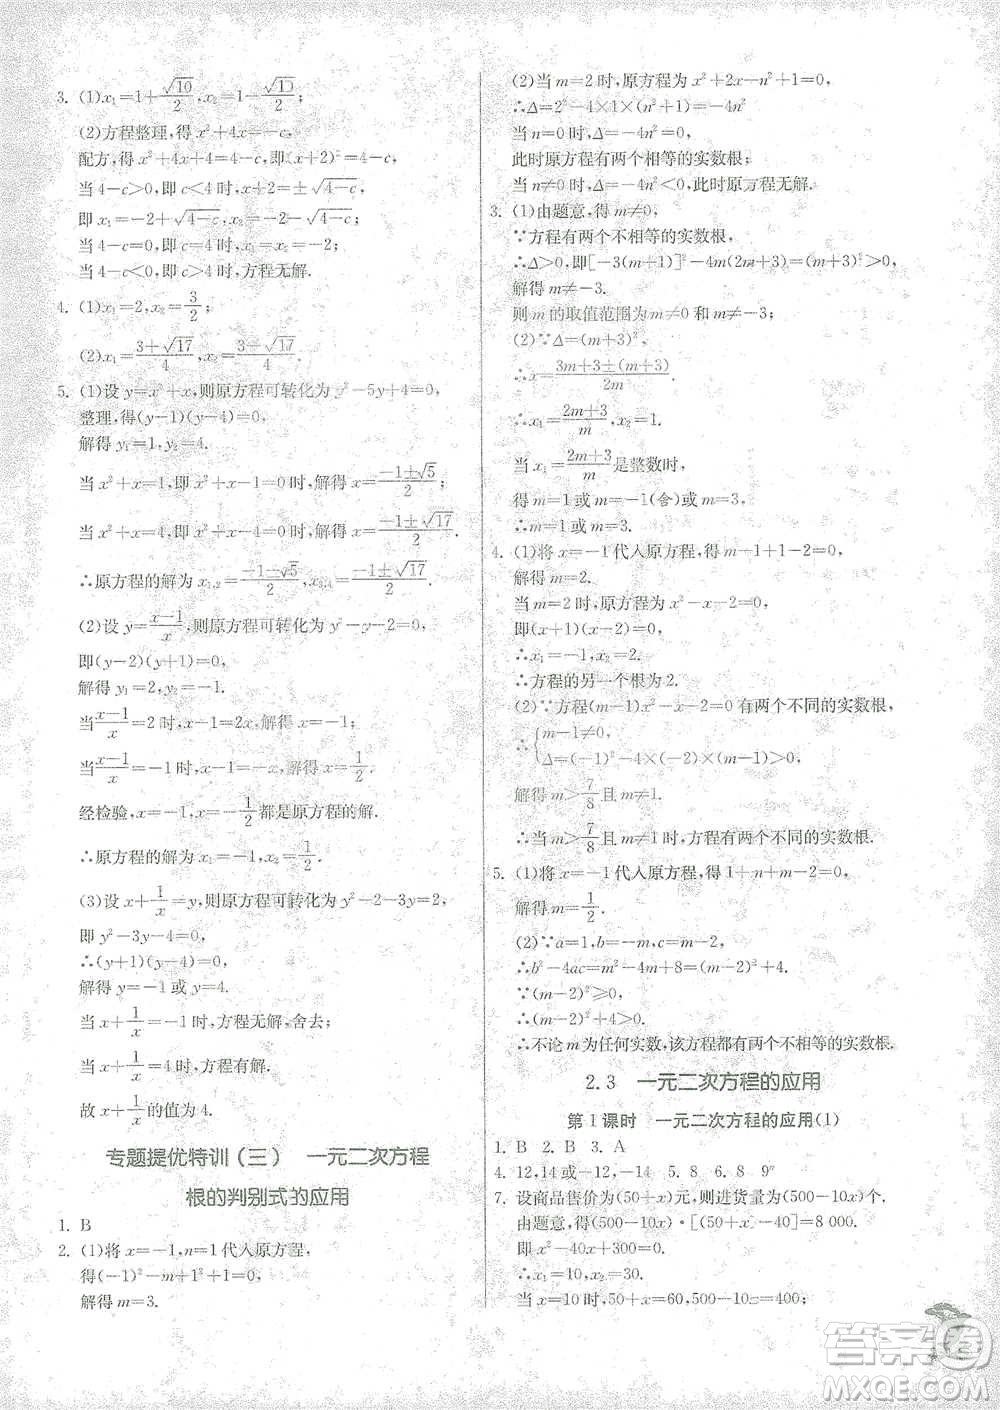 3. (1)x₁=1+√10/2,x₂=1-√10/2;
(2)方程整理,得 x²+4x=-c,
配方,得 x²+4x+4=4-c,即(x+2)²=4-c,
当 4-c>0,即 c<4 时,x+2=±√(4-c),
即 x₁=-2+√(4-c),x₂=-2-√(4-c);
当 4-c=0,即 c=4 时,x₁=x₂=-2;
当 4-c<0,即 c>4 时,方程无解.
4. (1)x₁=2,x₂=3/2;
(2)x₁=(3+√17)/4,x₂=(3-√17)/4.
5. (1)设 y=x²+x,则原方程可转化为 y²-5y+4=0,
整理,得(y-1)(y-4)=0,
解得 y₁=1,y₂=4.
当 x²+x=1,即 x²+x-1=0时,解得 x=(-1±√5)/2;
当 x²+x=4,即 x²+x-4=0时,解得 x=(-1±√17)/2.
∴原方程的解为 x₁,₂=(-1±√5)/2,x₃,₄=(-1±√17)/2.
(2)设 y=(x-1)/x,则原方程可转化为 y²-y-2=0,
即(y-2)(y+1)=0,
解得 y₁=2,y₂=-1.
当(x-1)/x=2时,x-1=2x,解得 x=-1;
当(x-1)/x=-1时,x-1=-x,解得 x=1/2.
经检验,x=-1,x=1/2都是原方程的解.
∴原方程的解为 x₁=-1,x₂=1/2.
(3)设 x+1/x=y,则原方程可转化为 y²-2-3y=2,
即 y²-3y-4=0,
∴(y+1)(y-4)=0,
解得 y=-1 或 y=4.
当 x+1/x=-1 时,方程无解,舍去;
当 x+1/x=4 时,方程有解.
故 x+1/x的值为 4.
专题提优特训(三) 一元二次方程
根的判别式的应用
1. B
2. (1)将 x=-1,n=1 代入原方程,
得(-1)²-m+1+1=0,
解得 m=3.
(2)当 m=2 时,原方程为 x²+2x-n²+1=0,
当n=0时,Δ=-4n²=0,
此时原方程有两个相等的实数根;
当 n≠0 时,Δ=-4n²<0,此时原方程无解.
3. (1)由题意,得 m≠0,
∵方程有两个不相等的实数根,
∴Δ>0,即[-3(m+1)]²-4m(2m+3)>0,
解得 m≠-3.
则 m 的取值范围为m≠0 和 m≠-3;
(2)∵Δ=(m+3)²,
∴x=(3m+3±(m+3))/2m,
∴x₁=(2m+3)/m,x₂=1.
当 x₁=(2m+3)/m是整数时,
得 m=1 或 m=-1(舍)或 m=3,
∴m=1 或 m=3.
4. (1)将 x=-1代入原方程,得 m-1+1-2=0,
解得 m=2.
当m=2 时,原方程为 x²-x-2=0,
即(x+1)(x-2)=0,
∴x₁=-1,x₂=2,
∴方程的另一个根为 2.
(2)∵方程(m-1)x²-x-2=0 有两个不同的实数根,
∴{m-1≠0,
Δ=(-1)²-4×(-2)×(m-1)>0,
解得 m>7/8且 m≠1.
∴当 m>7/8且 m≠1时,方程有两个不同的实数根.
5. (1)将 x=-1代入原方程,得1+m+m-2=0,
解得m=1/2.
(2)∵a=1,b=-m,c=m-2,
∴b²-4ac=m²-4m+8=(m-2)²+4.
∵(m-2)²≥0,
∴(m-2)²+4>0.
∴不论 m 为任何实数,该方程都有两个不相等的实数根.
2.3 一元二次方程的应用
第1课时 一元二次方程的应用(1)
1. B 2. B 3. A
4. 12,14或-12,-14 5. 8 6. 8 9
7. 设商品售价为(50+x)元,则进货量为(500-10x)个.
由题意,得(500-10x)·[(50+x)-40]=8 000.
即 x²-40x+300=0.
∴x₁=10,x₂=30.
当 x=10时,50+x=60,500-10x=400;
答案圈
MXQE.COM